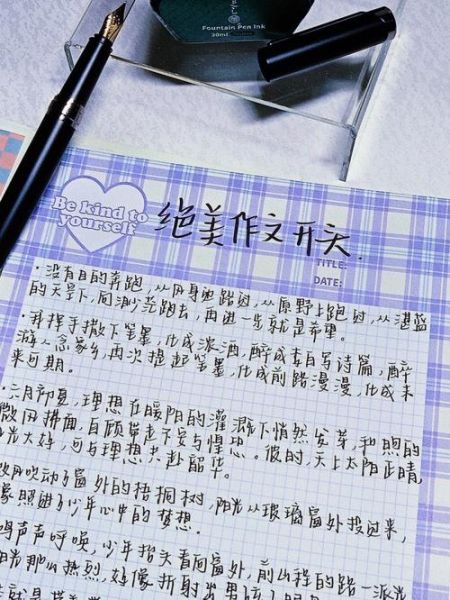 Fountain Pen Ink
30ml
Be kind to
yourself
绝美作文开头.
TITLE:
DATE:
·没有目的奔跑,从风身边路过,从原野上跑过,从湛蓝
的天景下,向渺茫跑去,再进一步就是希望。
·我挥手撒下笔墨,化成浓酒,醉成李白写诗篇,醉
游人念家乡,再次提起笔墨,化成前路漫漫,化成未
来可期。
·二月初夏,理想在暖阳的灌溉下悄然发芽,和煦的
微风拂面,自顾带走不安与惶恐。彼时,天上太阳正晴,
光大好,可与理想共赴韶华。
吹动了窗外的梧桐树,阳光从玻璃窗外投过来,
像照进了少年心中的梦想。
鸣声声呼唤,少年抬头看向窗外,前山程的路一派光
阳光那么热烈,好像折射出